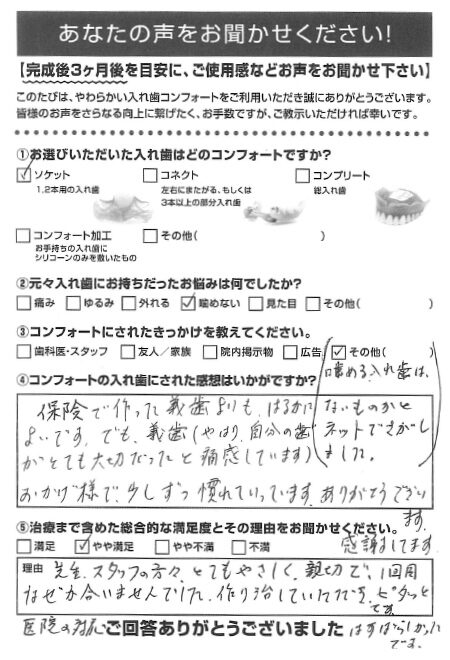 あなたの声をお聞かせください!
【完成後3ヶ月後を目安に、ご使用感などお声をお聞かせ下さい】
このたびは、やわらかい入れ歯コンフォートをご利用いただき誠にありがとうございます。
皆様のお声をさらなる向上に繋げたく、お手数ですが、ご教示いただければ幸いです。
①お選びいただいた入れ歯はどのコンフォートですか?
ソケット
1,2本用の入れ歯
コネクト
左右にまたがる、もしくは
3本以上の部分入れ歯
コンプリート
総入れ歯
コンフォート加工
お手持ちの入れ歯に
シリコーンのみを敷いたもの
その他( )
②元々入れ歯にお持ちだったお悩みは何でしたか?
痛み ゆるみ 外れる 噛めない 見た目 その他( )
③コンフォートにされたきっかけを教えてください。
歯科医・スタッフ 友人/家族 院内掲示物 広告 その他( )
噛める入れ歯は、
ないものかと
ネットでさがし
ました。
④コンフォートの入れ歯にされた感想はいかがですか?
保険で作った義歯よりも、はるかに
よいです。でも、義歯(やはり自分の歯
がとても大切だったと痛感しています)
おかげ様で、少しずつ慣れていっています。ありがとうござい
ます。
感謝してます
⑤治療まで含めた総合的な満足度とその理由をお聞かせください。
満足 やや満足 やや不満 不満
理由 先生、スタッフの方々、とてもやさしく、親切で、1回目
なぜか合いませんでした。作り治していただき、ピタッと
です
医院の対応
はすばらしかった
です。
ご回答ありがとうございました